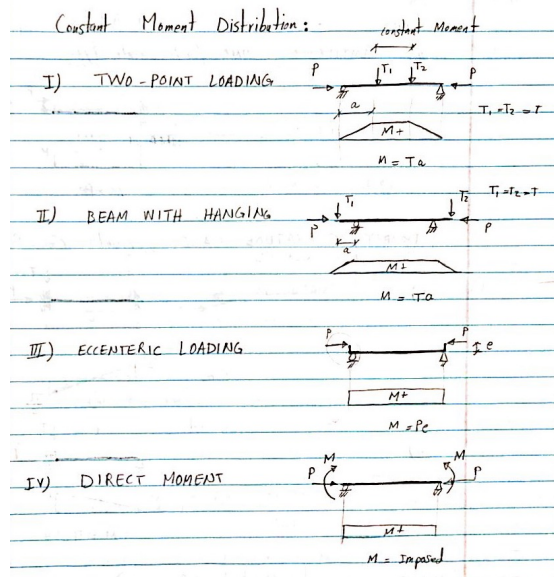 Constant Moment Distribution:
constant Moment
I) TWO-POINT LOADING
P T1 T2 P
a
T1=T2=T
M+
M = Ta
II) BEAM WITH HANGING
T1 T2 T1=T2=T
P P
a
M+
M = Ta
III) ECCENTERIC LOADING
P P e
M+
M = Pe
IV) DIRECT MOMENT
M M
P P
M+
M = Imposed